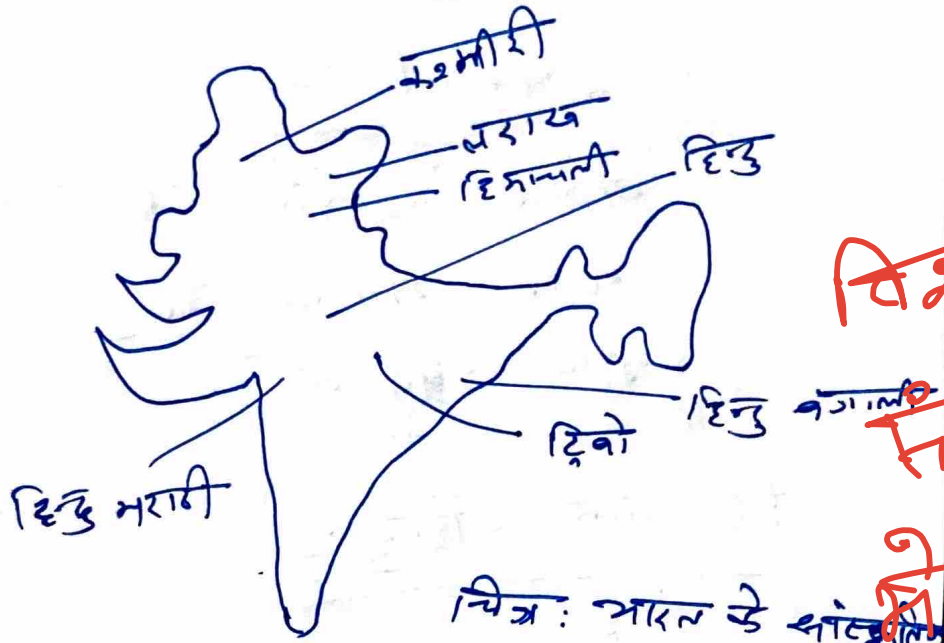 कश्मीरी
लद्दाख
हिमाचली
हिन्दु
हिन्दु बंगाली
ट्रिबो
हिन्दु मराठी
चित्र: भारत के